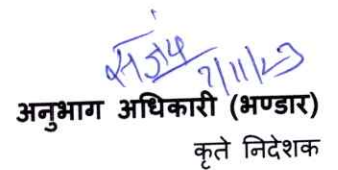 संजय
7/11/23
अनुभाग अधिकारी (भण्डार)
कृते निदेशक